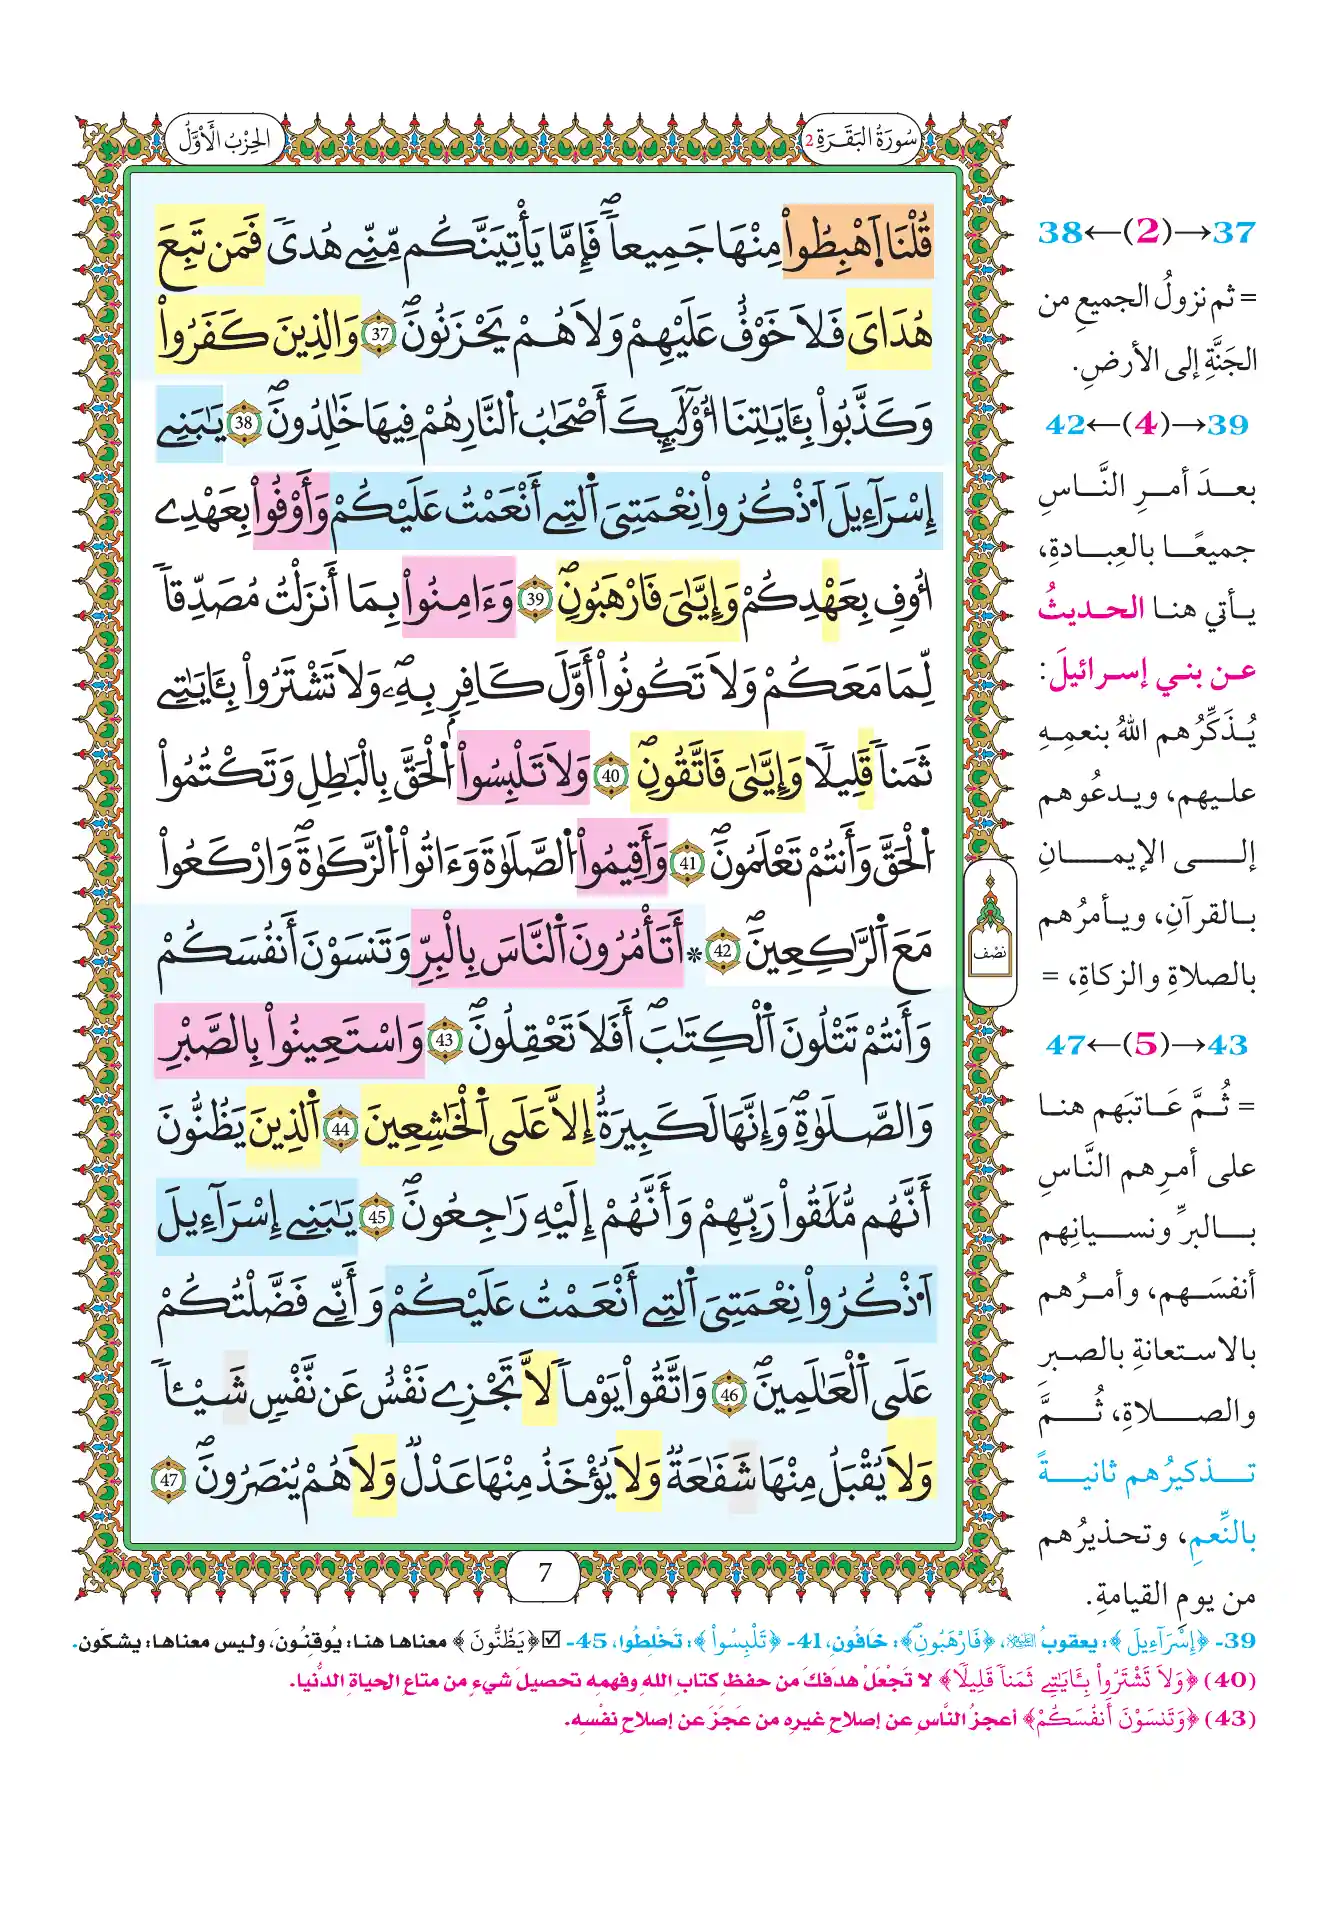 سُورَةُ البَقَرَةِ 2
الحِزْبُ الأَوَّلُ
قُلْنَا اَهْبِطُواْ مِنْهَا جَمِيعاً فَإِمَّا يَأْتِيَنَّكُم مِّنِّے هُدىٗ فَمَن تَبِعَ
هُدَايَ فَلَا خَوْفٌ عَلَيْهِمْ وَلَا هُمْ يَحْزَنُونَۖ 37 وَالذِينَ كَفَرُواْ
وَكَذَّبُواْ بِـَٔايَٰتِنَا أُوْلَٰٓئِكَ أَصْحَٰبُ اُ۬لنَّارِ هُمْ فِيهَا خَٰلِدُونَۖ 38 يَٰبَنِے
إِسْرَآءِيلَ اَ۟ذْكُرُواْ نِعْمَتِيَ اَ۬لتِے أَنْعَمْتُ عَلَيْكُمْ وَأَوْفُواْ بِعَهْدِے
أُوفِ بِعَهْدِكُمْ وَإِيَّٰيَ فَارْهَبُونِۖ 39 وَءَامِنُواْ بِمَا أَنزَلْتُ مُصَدِّقاٗ
لِّمَا مَعَكُمْ وَلَا تَكُونُواْ أَوَّلَ كَافِرِۭ بِهِۦۖ وَلَا تَشْتَرُواْ بِـَٔايَٰتِے
ثَمَناٗ قَلِيلاٗ وَإِيَّٰيَ فَاتَّقُونِۖ 40 وَلَا تَلْبِسُواْ اُ۬لْحَقَّ بِالْبَٰطِلِ وَتَكْتُمُواْ
اُ۬لْحَقَّ وَأَنتُمْ تَعْلَمُونَۖ 41 وَأَقِيمُواْ اُ۬لصَّلَوٰةَ وَءَاتُواْ اُ۬لزَّكَوٰةَۖ وَارْكَعُواْ
مَعَ اَ۬لرَّٰكِعِينَۖ 42 * أَتَأْمُرُونَ اَ۬لنَّاسَ بِالْبِرِّ وَتَنسَوْنَ أَنفُسَكُمْ
وَأَنتُمْ تَتْلُونَ اَ۬لْكِتَٰبَۖ أَفَلَا تَعْقِلُونَۖ 43 وَاسْتَعِينُواْ بِالصَّبْرِ
وَالصَّلَوٰةِۖ وَإِنَّهَا لَكَبِيرَةٌ إِلَّا عَلَى اَ۬لْخَٰشِعِينَ 44 اَ۬لذِينَ يَظُنُّونَ
أَنَّهُم مُّلَٰقُواْ رَبِّهِمْ وَأَنَّهُمْ إِلَيْهِ رَٰجِعُونَۖ 45 يَٰبَنِے إِسْرَآءِيلَ
اَ۟ذْكُرُواْ نِعْمَتِيَ اَ۬لتِے أَنْعَمْتُ عَلَيْكُمْ وَأَنِّے فَضَّلْتُكُمْ
عَلَى اَ۬لْعَٰلَمِينَۖ 46 وَاتَّقُواْ يَوْماٗ لَّا تَجْزِے نَفْسٌ عَن نَّفْسٖ شَيْـٔاٗ
وَلَا يُقْبَلُ مِنْهَا شَفَٰعَةٌ وَلَا يُؤْخَذُ مِنْهَا عَدْلٌ وَلَا هُمْ يُنصَرُونَۖ 47
نصْف
7
37→(2)←38
= ثم نزولُ الجميعِ من
الجَنَّةِ إلى الأرضِ.
39→(4)←42
بعدَ أمرِ النَّاسِ
جميعًا بالعِبادةِ،
يأتي هنا الحديثُ
عن بني إسرائيلَ:
يُذَكِّرُهم اللهُ بنعمِهِ
عليهم، ويدعُوهم
إلى الإيمانِ
بالقرآنِ، ويأمرُهم
بالصلاةِ والزكاةِ، =
43→(5)←47
= ثُمَّ عَاتبَهم هنا
على أمرِهم النَّاسِ
بالبرِّ ونسيانِهم
أنفسَهم، وأمرُهم
بالاستعانةِ بالصبرِ
والصلاةِ، ثُمَّ
تذكيرُهم ثانيةً
بالنِّعمِ، وتحذيرُهم
من يومِ القيامةِ.
39- ﴿إِسْرَآءِيلَ﴾: يعقوبُ عليه السلام، ﴿فَارْهَبُونِۖ﴾: خَافُونِ، 41- ﴿تَلْبِسُواْ﴾: تَخْلِطُوا، 45- ☑ ﴿يَظُنُّونَ﴾ معناها هنا: يُوقِنُونَ، وليس معناها: يشكّون.
(40) ﴿وَلَا تَشْتَرُواْ بِـَٔايَٰتِے ثَمَناٗ قَلِيلاٗ﴾ لا تَجْعَلْ هدَفكَ من حفظِ كتابِ اللهِ وفهمِه تحصيلَ شيءٍ من متاعِ الحياةِ الدُّنيا.
(43) ﴿وَتَنسَوْنَ أَنفُسَكُمْ﴾ أعجزُ النَّاسِ عن إصلاحِ غيرِه من عَجَزَ عن إصلاحِ نفْسِه.